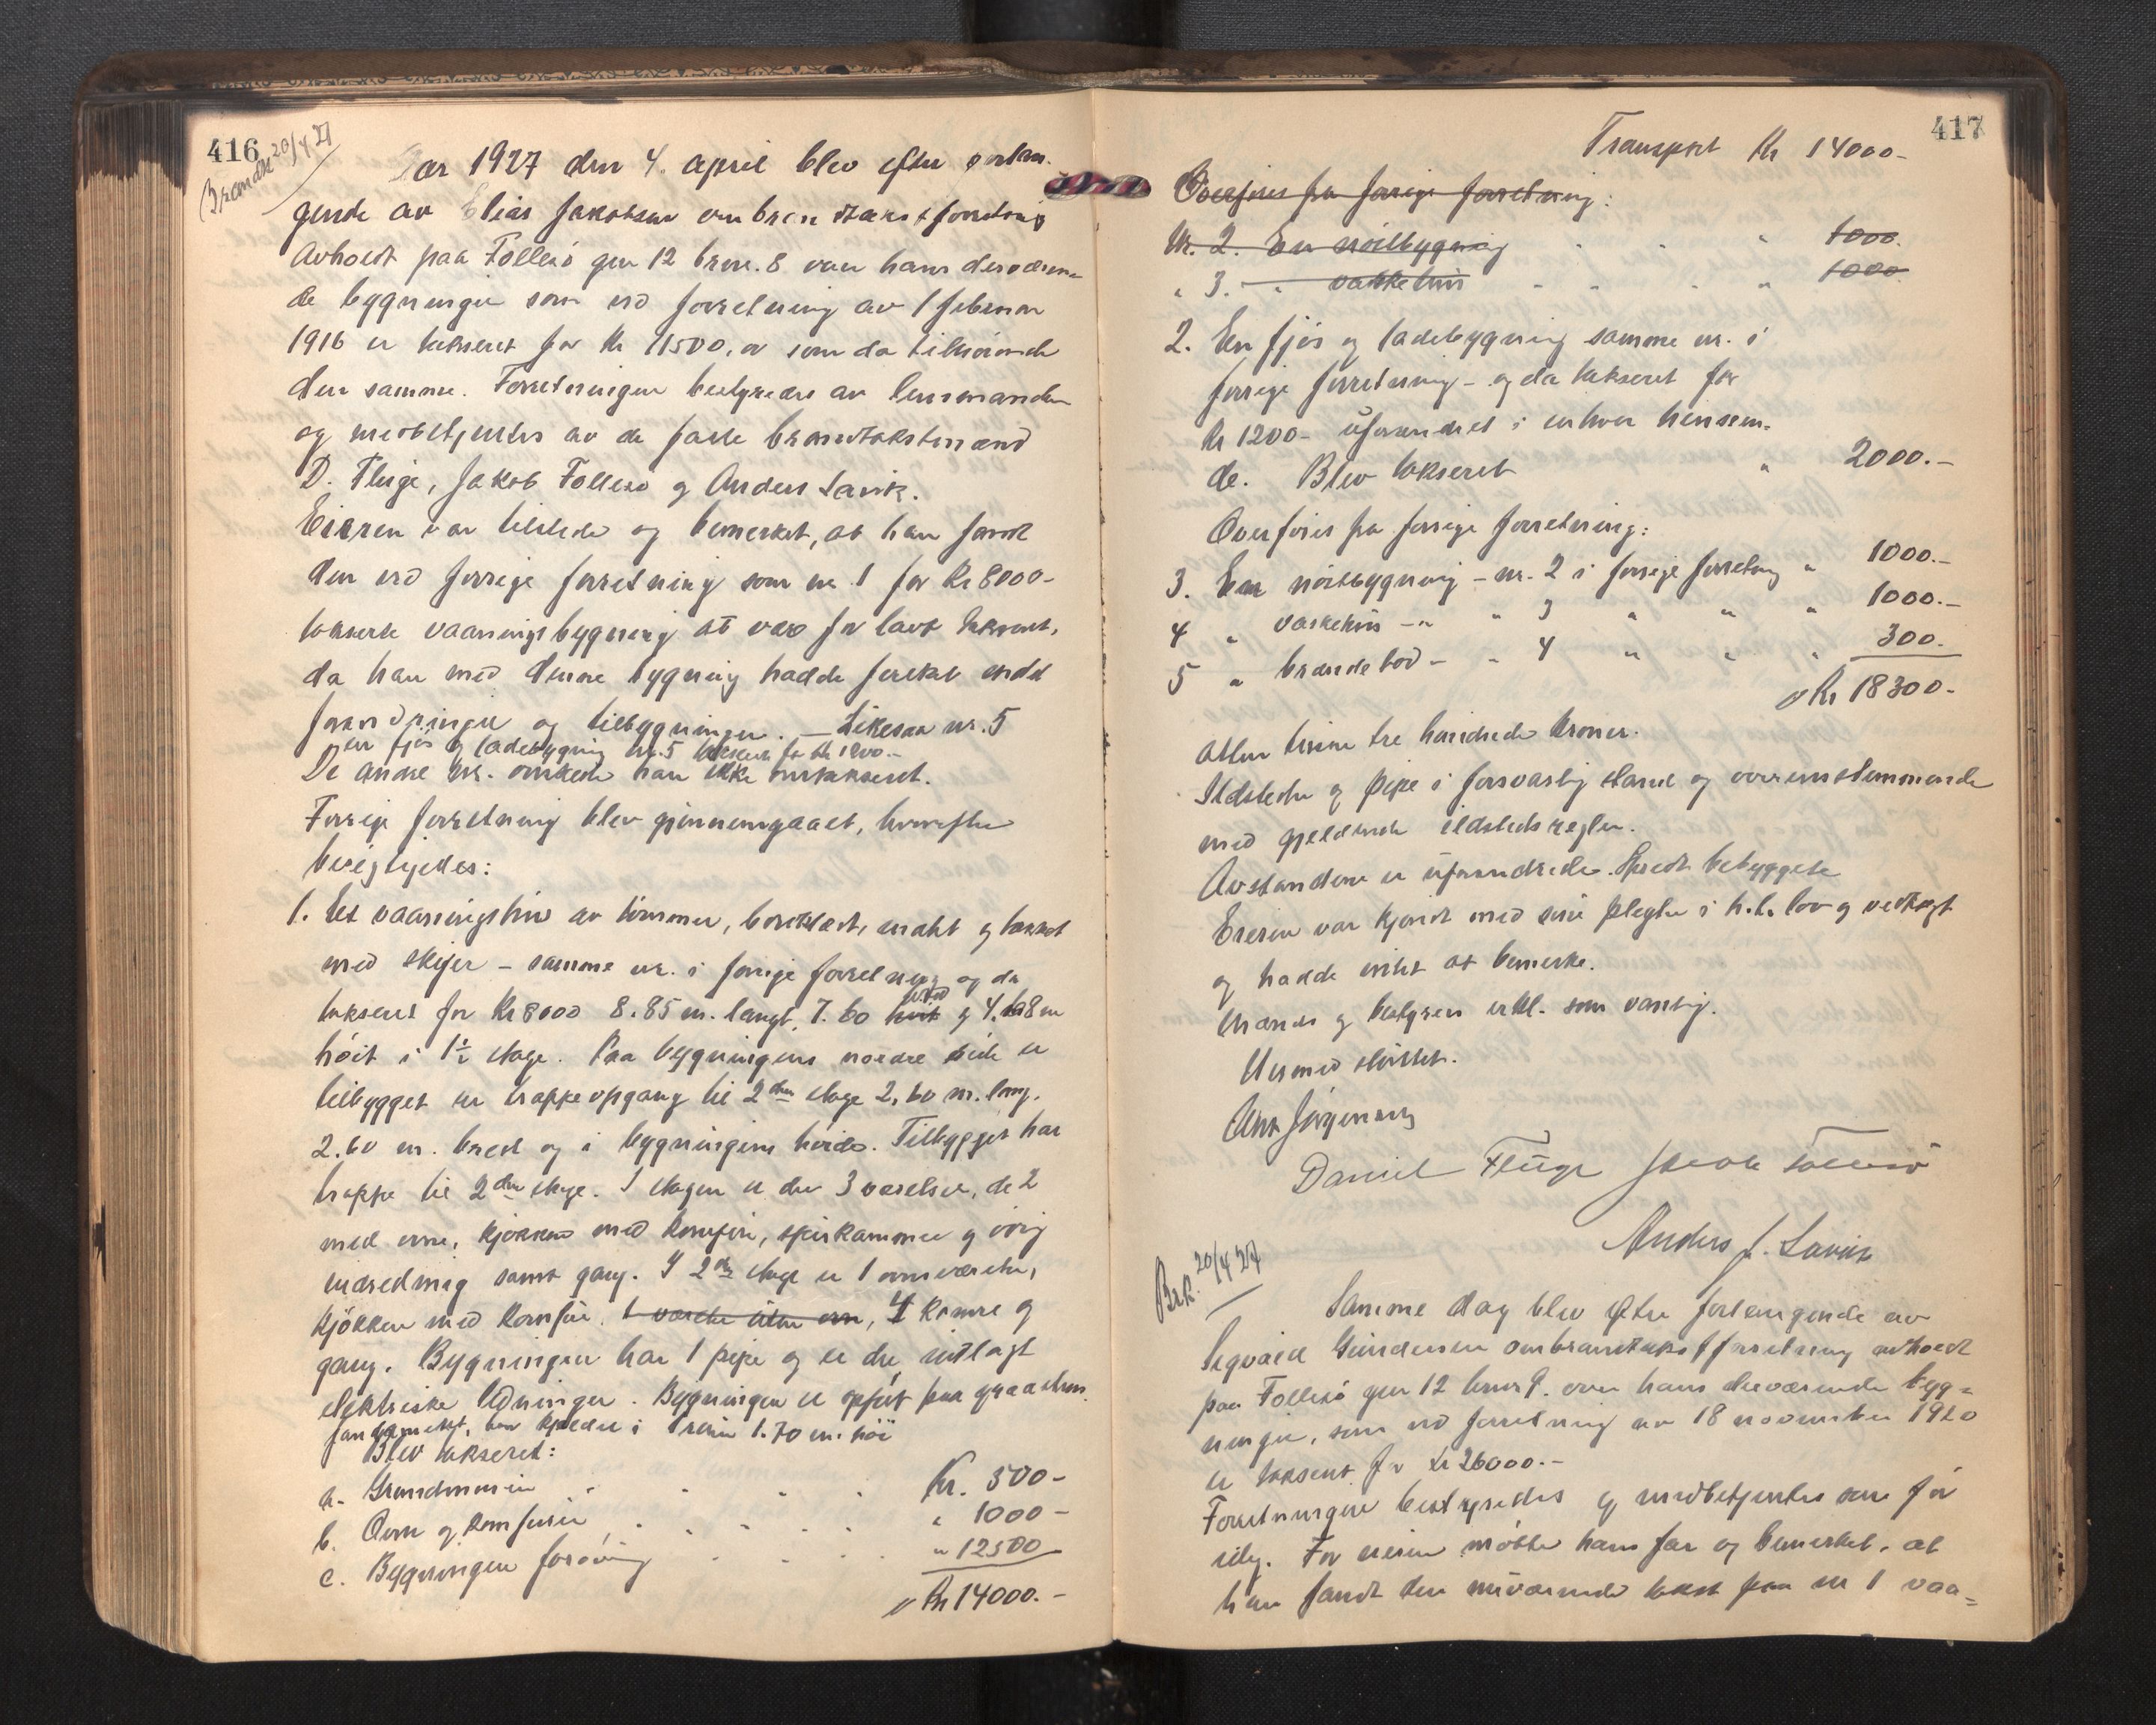 416
Brandk 20/4 27
Aar 1927 den 4. april blev efter forlan-
gende av Elias Jakobsen ombrandtakstforretning
avholdt paa Follesö gnr 12 brnr. 8 over hans derværen-
de bygninger som ved forretning av 1 februar
1916 er takseret for Kr 11500, og som da tilhörende
den samme. Forretningen bestyredes av lensmanden
og medbetjentes av de faste brandtakstmænd
D. Fluge, Jakob Follesö og Anders Lavik.
Eieren var tilstede og bemerket, at han fandt
den ved forrige forretning som nr. 1 for Kr 8000-
takserte vaaningsbygning at være for lavt takseret,
da han med denne bygning hadde foretat endel
forandringer og tilbygninger. — Likesaa nr. 5
en fjös og ladebygning nr. 5 takseret for Kr 1200.-
De andre nr. önskede han ikke omtakseret.
Forrige forretning blev gjennemgaaet, hvorefter
besigtigedes:
1. Et vaaningshus av tömmer, bordklædt, malt og tækket
med skifer - samme nr. i forrige forretning og da
takseret for Kr 8000 8.85 m. langt, 7.60 bred og 4.68 m
höit i 1½ etage. Paa bygningens nordre side er
tilbygget en trappeopgang til 2den etage 2,60 m. lang.
2.60 m. bred og i bygningens höide. Tilbygget har
trappe til 2den etage. I etagen er der 3 værelser, de 2
med ovne, kjökken med komfür, spiskammer og övrig
indredning samt gang. I 2den etage er 1 ovnsværelse,
kjökken med komfür, 1 værelse uten ovn, 4 kamre og
gang. Bygningen har 1 pipe og er der indlagt
elektriske ledninger. Bygningen er opfört paa graastens
fundament, har kjelder i 1 rum 1.70 m. höi
Blev takseret:
a. Grundmuren . . . . Kr. 500-
b. Ovne og komfürer . . . . " 1000-
c. Bygningen forövrig . . . " 12500
Kr 14000.-
417
Transport Kr 14000-
Overföres fra forrige forretning:
Nr. 2. En nöstbygning . . " 1000.
" 3. " vaskehus - - . " 1000
2. En fjös og ladebygning samme nr. i
forrige forretning - og da takseret for
Kr 1200- uforandret i enhver henseen-
de. Blev takseret " 2000.-
Overföres fra forrige forretning:
3. En nöstbygning - nr. 2 i forrige forretning " 1000.-
4 " vaskehus - " " 3 " " " 1000.-
5 " brændebod - " 4 " " " 300.
Kr 18300-
atten tusen tre hundrede kroner.
Ildsteder og pipe i forsvarlig stand og overensstemmende
med gjeldende ildstedsregler.
Avstandene er uforandrede. Spredt bebyggelse
Eieren var kjendt med sine pligter i h.t. lov og vedtægt
og hadde intet at bemerke.
Mænd og bestyrer erkl. som vanlig.
Dermed sluttet.
Jörgensen
Daniel Fluge Jakob Follesö
Anders J. Lavik
Brk. 20/4 27
Samme dag blev efter forlangende av
Sigvald Gundersen ombrandtakstforretning avholdt
paa Follesö gnr 12 brnr 9. over hans derværende byg=
ninger, som ved forretning av 18 november 1920
er takseret for Kr 26000.-
Forretningen bestyredes og medbetjentes som for
idag. For eieren mötte hans far og bemerket, at
han fandt den nuværende takst paa nr 1 vaa=